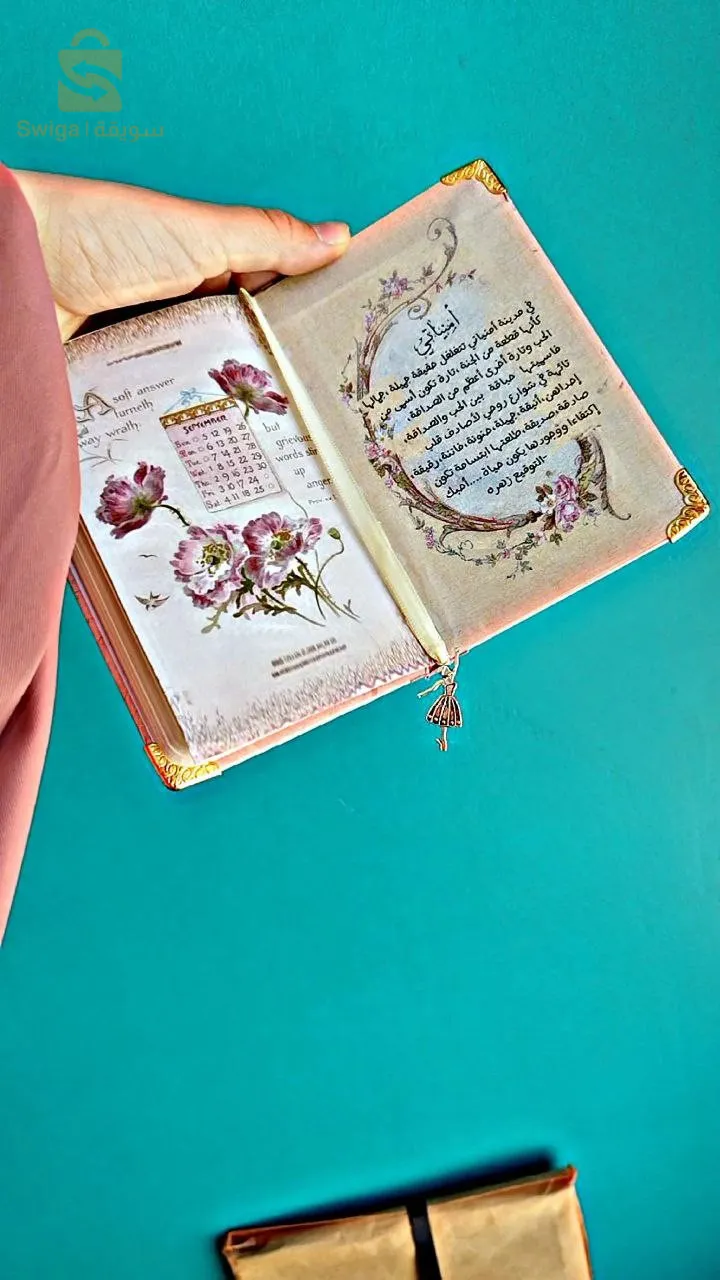 Swiqa | سويقة
A soft answer
turneth
away wrath.
but
grievous
words stir
up
anger.
Prov.
SEPTEMBER
Sun 5 12 19 26
Mon 6 13 20 27
Tue 7 14 21 28
Wed 1 8 15 22 29
Thu 2 9 16 23 30
Fri 3 10 17 24
Sat 4 11 18 25
أمنياتي
في مدينة أمنياتي تتغلغل حقيقة جميلة جمالها
كأنها قطعة من الجنة، تارة تكون أسمى من
الحب وتارة أخرى أعظم من الصداقة،
فاسميتها حياقة بين الحب والصداقة
تائهة في شوارع روحي لأصادف قلب
إحداهن، أنيقة، جميلة، حنونة، فاتنة، رقيقة
صادقة، صديقة، طلعتها ابتسامة تكون
إكتفاءا ووجودها يكون حياة....أحبك
-التوقيع زهره